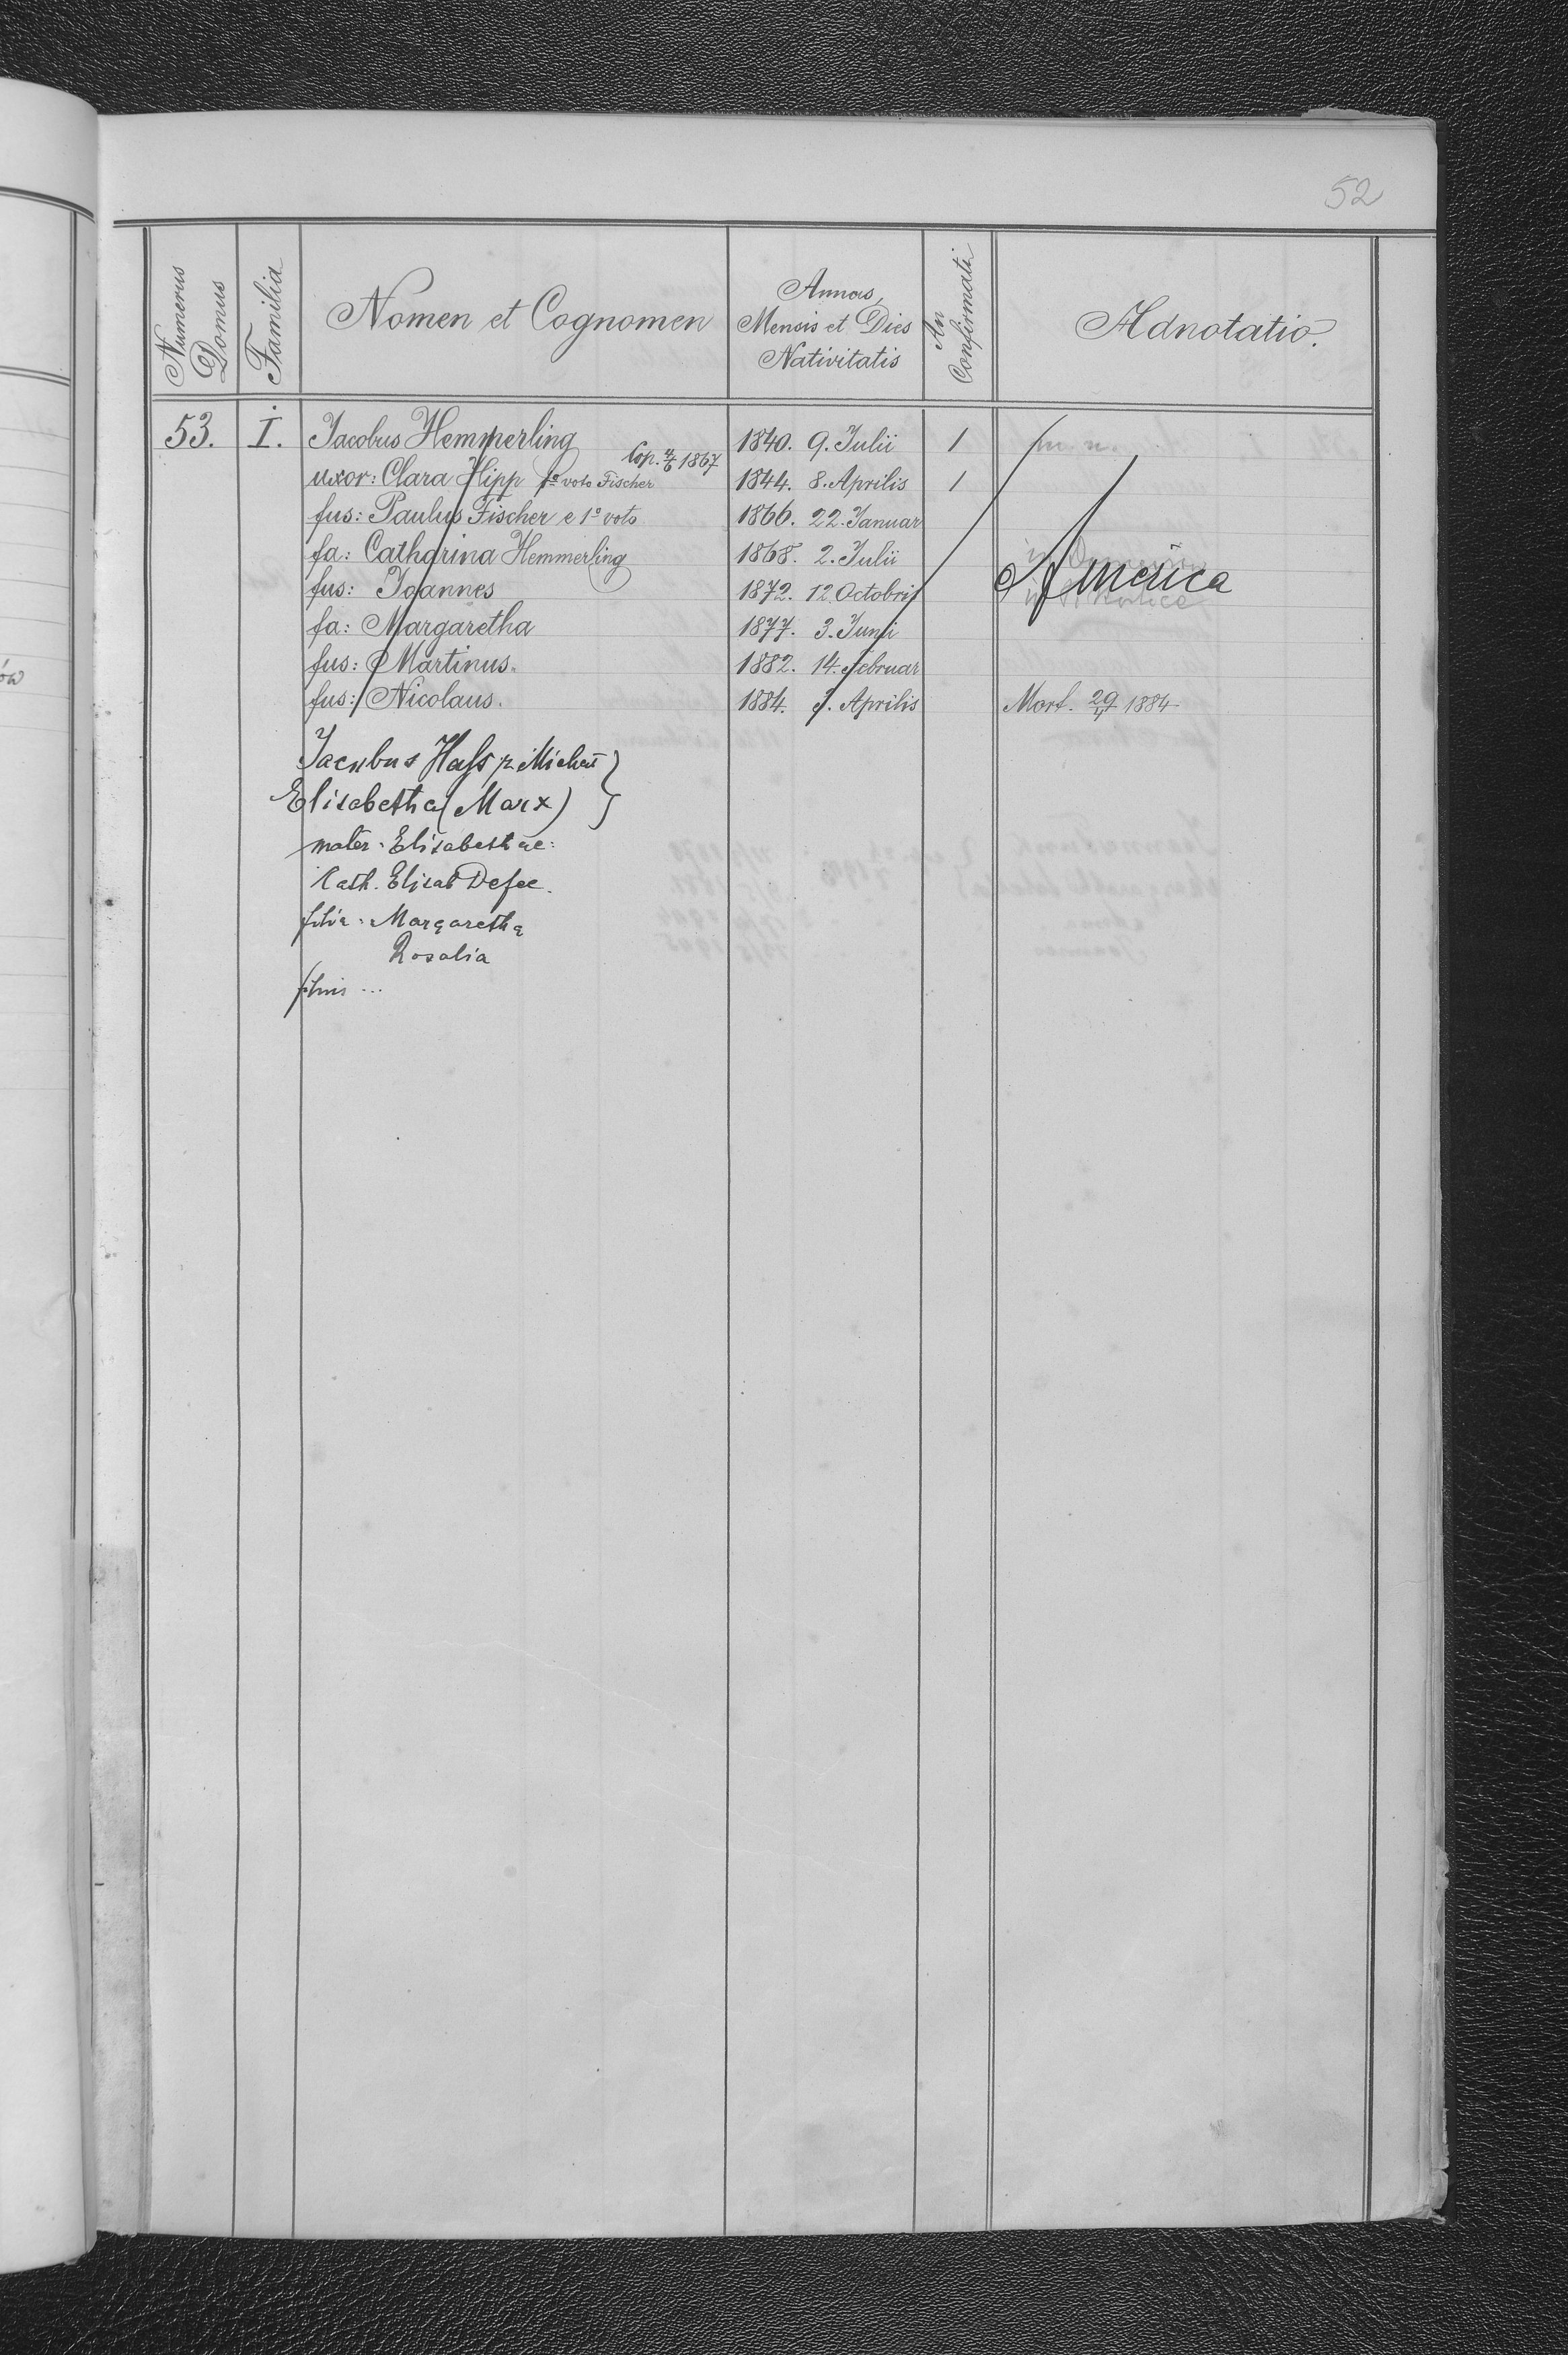 52
Numerus Domus
Familia
Nomen et Cognomen
Annus, Mensis et Dies Nativitatis
An Confirmati
Adnotatio.
53. I. Jacobus Hemmerling 1840. 9. Julii 1
Cop. 1867
uxor: Clara Hipp 1º voto Fischer 1844. 8. Aprilis 1
fus: Paulus Fischer e 1º voto 1866. 22. Januar
fa: Catharina Hemmerling 1868. 2. Julii
America
fus: Joannes 1872. 12 Octobris
fa: Margaretha 1877. 3. Junii
fus: Martinus. 1882. 14. Februar
fus: Nicolaus. 1884. Aprilis Mort. 29 1884
Jacobus Hass
Elisabetha (Marx)
mater: Elisabethae:
Kath. Elisab Defee.
filia: Margaretha
Rosalia
filius ...